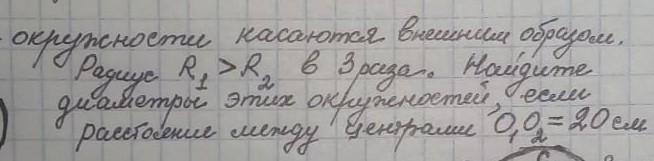 окружности касаются внешним образом.
Радиус R₁ > R₂ в 3 раза. Найдите
диаметры этих окружностей, если
расстояние между центрами O₁O₂ = 20 см